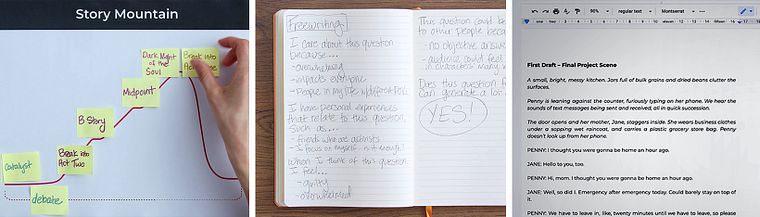 Story Mountain
Dark Night
of the
Soul
Break into
Midpoint
B Story
Break into
Act Two
Catalyst
debate
Freewriting
I care about this question
because...
-overwhelming
-impacts everyone
-People in my life
I have personal experiences
that relate to this question,
such as...
-friends who are activists
-I focus on myself - is it enough?
When I think of this question
I feel...
-guilty
-overwhelmed
This question could be
to other people beca
-no objective answe
-audience could feel
in characters'
Does this question f
Can generate a lot
YES!
90%
regular text
Montserrat
one two three four five six seven eight nine ten eleven 13 14 15 16 17 18
First Draft – Final Project Scene
A small, bright, messy kitchen. Jars full of bulk grains and dried beans clutter the
surfaces.
Penny is leaning against the counter, furiously typing on her phone. We hear the
sounds of text messages being sent and received, all in quick succession.
The door opens and her mother, Jane, staggers inside. She wears business clothes
under a sopping wet raincoat, and carries a plastic grocery store bag. Penny
doesn't look up from her phone.
PENNY: I thought you were gonna be home an hour ago.
JANE: Hello to you, too.
PENNY: Hi, mom. I thought you were gonna be home an hour ago.
JANE: Well, so did I. Emergency after emergency today. Could barely stay on top of
it.
PENNY: We have to leave in, like, twenty minutes until we have to leave, so please